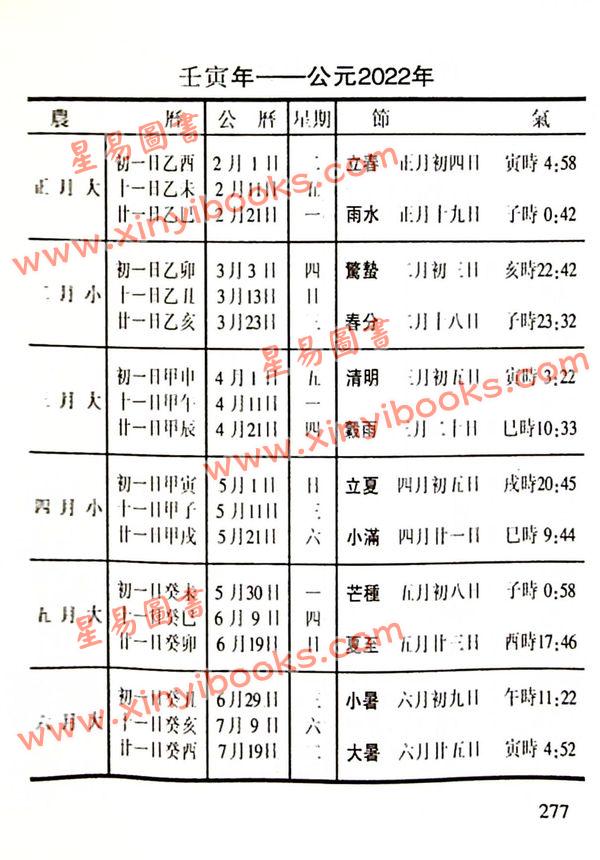 壬寅年——公元2022年
農 曆 公曆 星期 節 氣
正月大 初一日乙酉 2月1日 二 立春 正月初四日 寅時4:58
十一日乙未 2月11日 五
廿一日乙巳 2月21日 一 雨水 正月十九日 子時0:42
二月小 初一日乙卯 3月3日 四 驚蟄 二月初三日 亥時22:42
十一日乙丑 3月13日 日
廿一日乙亥 3月23日 三 春分 二月十八日 子時23:32
三月大 初一日甲申 4月1日 五 清明 三月初五日 寅時3:22
十一日甲午 4月11日 一
廿一日甲辰 4月21日 四 穀雨 三月二十日 巳時10:33
四月小 初一日甲寅 5月1日 日 立夏 四月初五日 戌時20:45
十一日甲子 5月11日 三
廿一日甲戌 5月21日 六 小滿 四月廿一日 巳時9:44
五月大 初一日癸未 5月30日 一 芒種 五月初八日 子時0:58
十一日癸巳 6月9日 四
廿一日癸卯 6月19日 日 夏至 五月廿三日 酉時17:46
六月大 初一日癸丑 6月29日 三 小暑 六月初九日 午時11:22
十一日癸亥 7月9日 六
廿一日癸酉 7月19日 二 大暑 六月廿五日 寅時4:52
277
星易圖書
www.xinyibooks.com
星易圖書
www.xinyibooks.com
星易圖書
www.xinyibooks.com